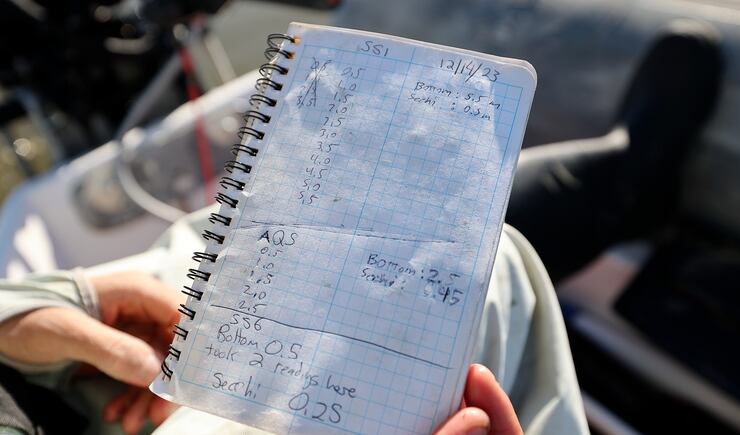 SS1
12/14/23
0.5
1.0
1.5
2.0
2.5
3.0
3.5
4.0
4.5
5.0
5.5
Bottom : 5.5 m
Secchi : 0.5 m
AQS
0.5
1.0
1.5
2.0
2.5
Bottom : 2.5
Secchi :
SS6
Bottom 0.5
took 2 readings here
Secchi 0.25